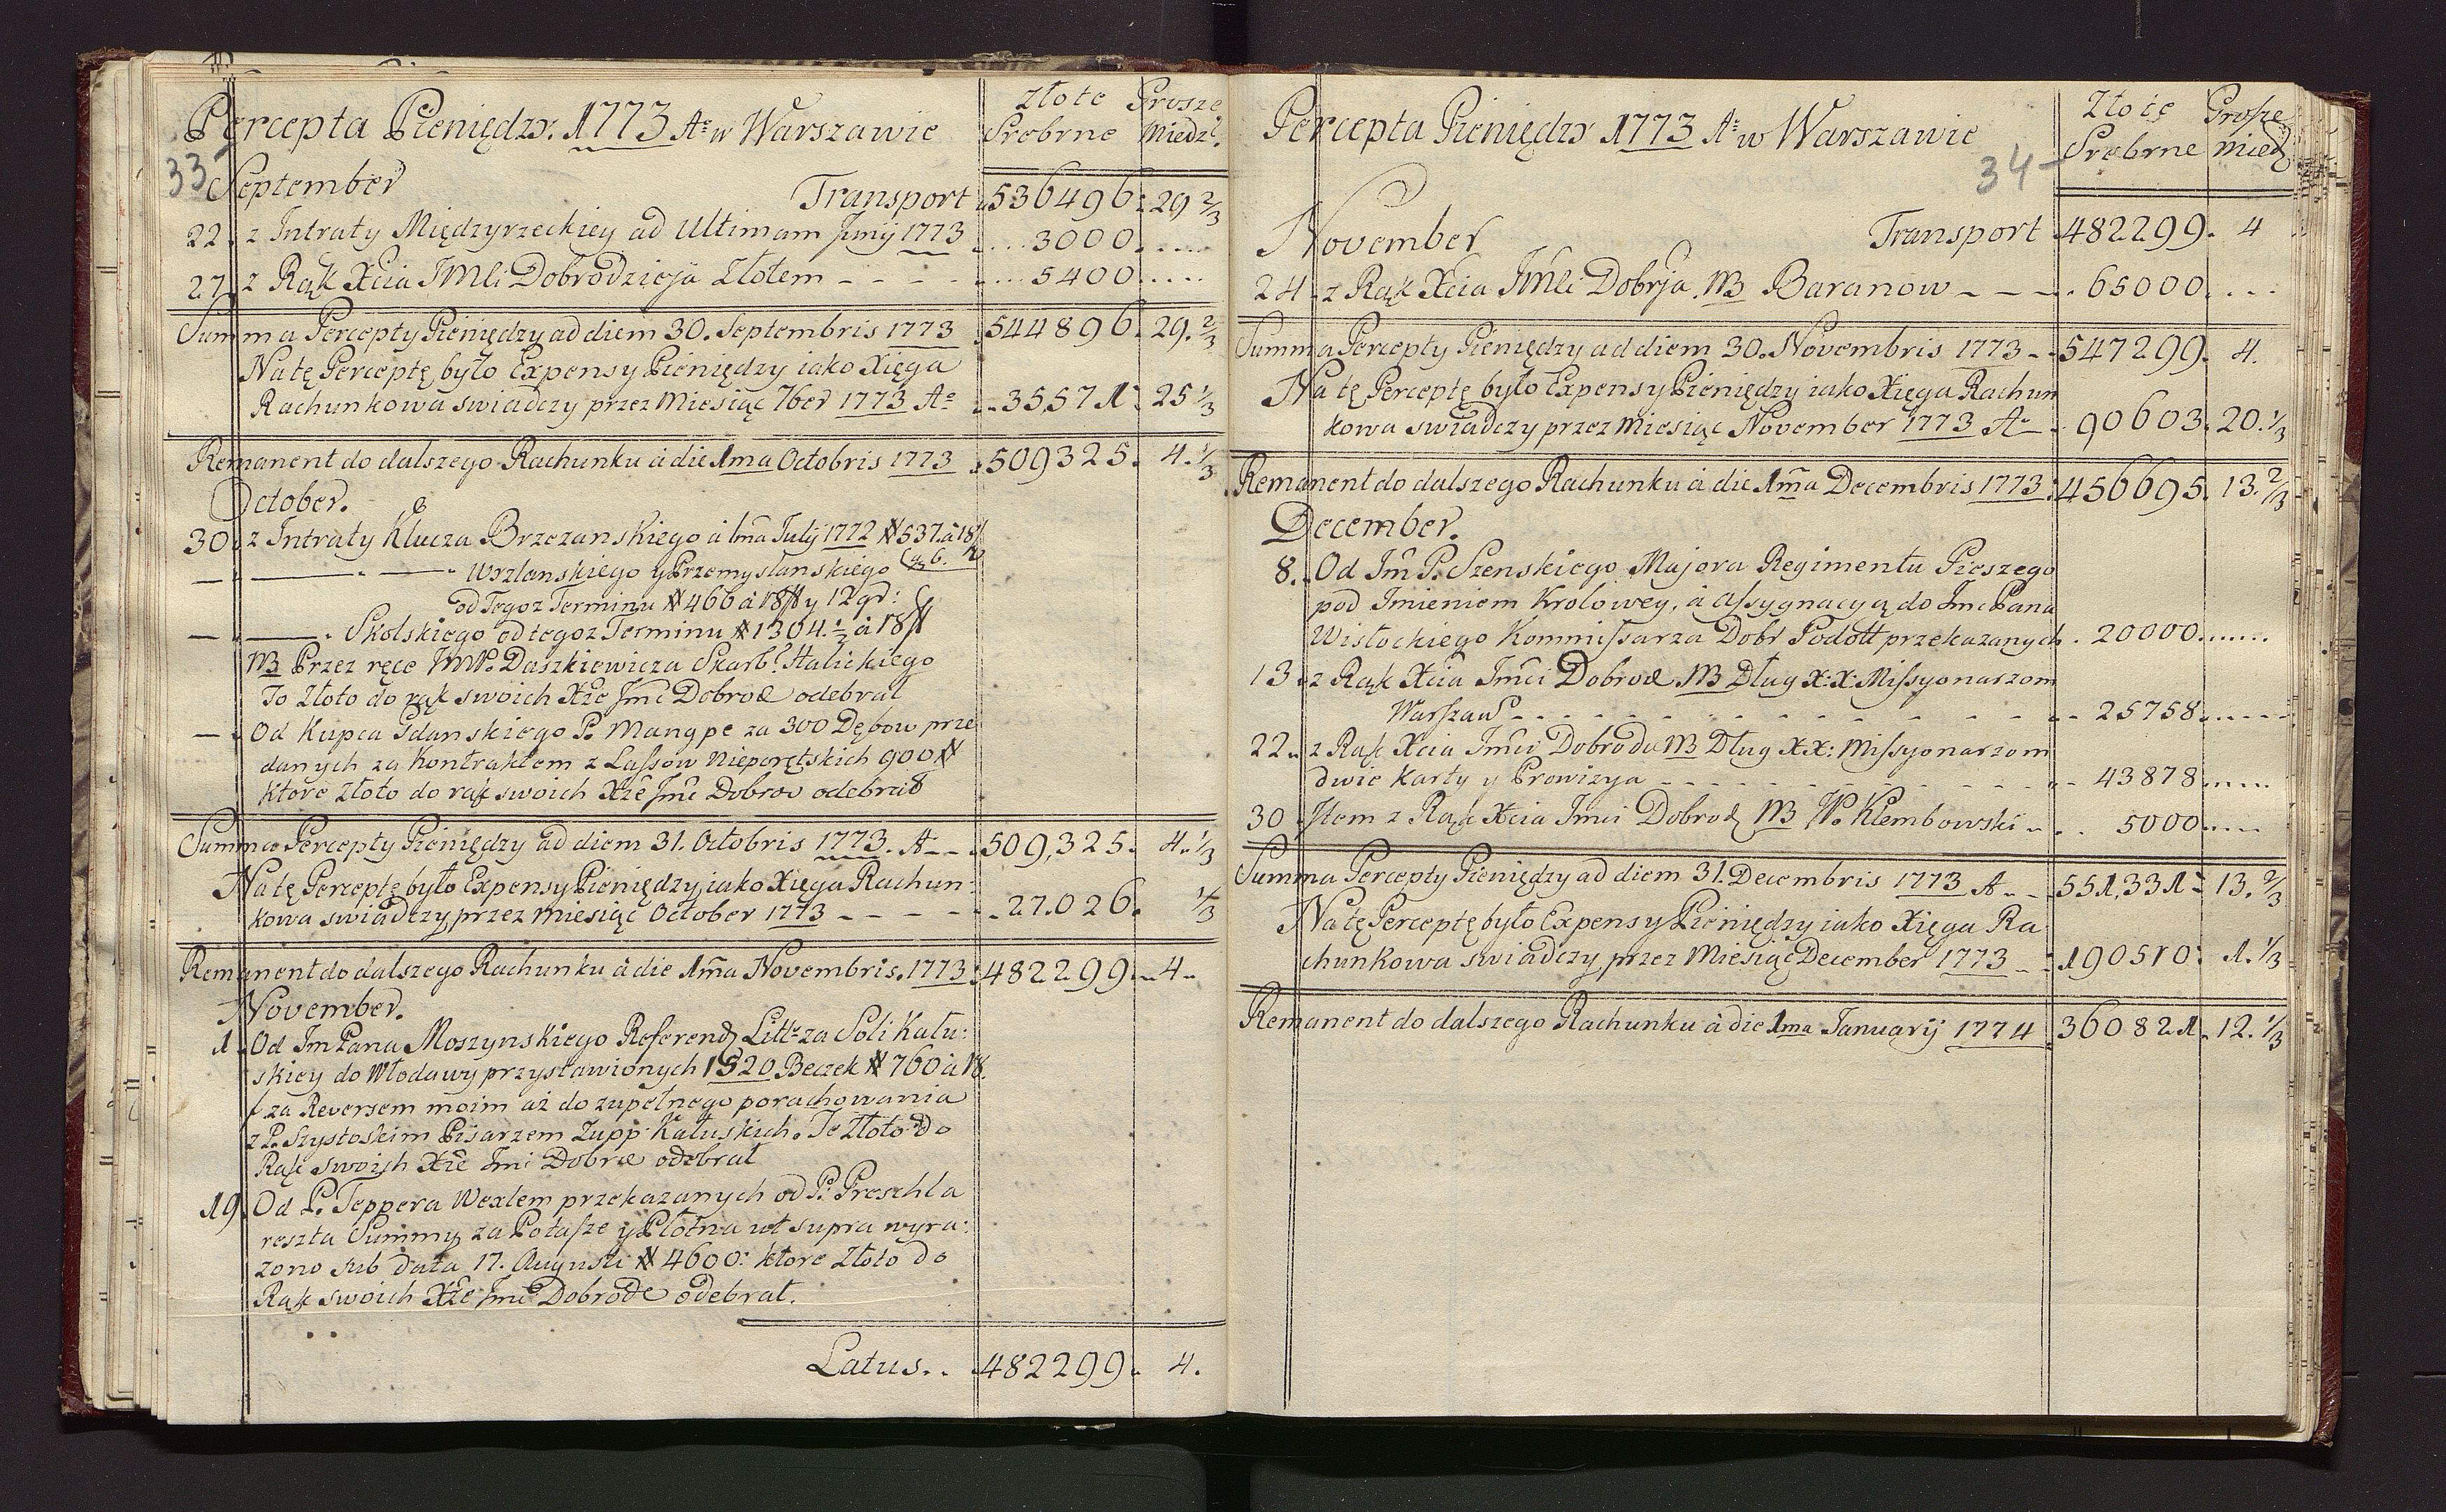 Percepta Pieniędzÿ. 1773 Aº w Warszawie
Złote Grosze
Srebrne Miedź.
33
September
Transport 536496. 29 2/3
22. z Intraty Międzyrzeckiey ad Ultimam Junij 1773 ....3000.....
27. z Rąk Xcia JMci Dobrodzieja Złotem - - - - ....5400.....
Summa Percepty Pieniędzy ad diem 30. Septembris 1773 544896. 29. 2/3
Na tę Perceptę było Expensy Pieniędzy iako Xięga
Rachunkowa swiadczy przez Miesiąc 7ber 1773 Aº ..35571. 25 1/3
Remanent do dalszego Rachunku à die 1ma Octobris 1773 509325. 4. 1/3
October.
30. z Intraty Klucza Brzezanskiego à 1ma July 1772 # 537. à 18
Przemyslanskiego
od Tegoz Terminu # 466 à 18 y 12 gr:
Skolskiego od tegoz Terminu # 1304. 1/2 à 18
NB Przez ręce JMP. Daszkiewicza Skarb. Halickiego
To Złoto do rąk swoich Xże Jmć Dobrod odebrał
Od Kupca Gdanskiego P. Mangpe za 300 Dębow prze
danych za Kontraktem z Lassow Nieporętskich 900 #
ktore Złoto do rąk swoich Xże Jmć Dobrod odebrał
Summa Percepty Pieniędzy ad diem 31. Octobris 1773. A - - 509,325. 4. 1/3
Na tę Perceptę było Expensy Pieniędzy iako Xięga Rachun:
kowa swiadczy przez Miesiąc October 1773 - - - - ..27.026. 1/3
Remanent do dalszego Rachunku à die 1ma Novembris. 1773 482299. 4.
November.
1. Od Jm Pana Moszynskiego Referend Litt. za Soli Kału:
skiey do Włodawy przystawionych 1520 Beczek # 760 à 18.
za Reversem moim aż do zupełnego porachowania
z P. Szystoskim Pisarzem Zupp Kałuskich. Te Złoto do
Rąk swoich Xże Jmć Dobrod odebrał
19. Od P. Teppera Wexlem przekazanych od P. Preschla
reszta Summy za Potasze y Płotna ut supra wyra:
zono sub data 17. Augusti # 4600: ktore Złoto do
Rąk swoich Xże Jmć Dobrode odebrał.
Latus.. 482299. 4.
Percepta Pieniędzÿ 1773 Aº w Warszawie
Złote Grosze
Srebrne Miedź
34
November
Transport 482299. 4
24. z Rąk Xcia JMci Dobrja. NB Baranow - - - . 65000. ...
Summa Percepty Pieniędzy ad diem 30. Novembris 1773 - 547299. 4.
Na tę Perceptę było Expensy Pieniędzy iako Xięga Rachun
kowa swiadczy przez Miesiąc November 1773 Aº . 90603. 20. 1/3
Remanent do dalszego Rachunku à die 1ma Decembris 1773 456695. 13. 2/3
December.
8. Od Jm P. Szenskiego Majora Regimentu Pieszego
pod Imieniem Krolowey, à assygnacyą do Jmc Pana
Wisłockiego Kommissarza Dobr Podoll przekazanych . 20000.......
13. z Rąk Xcia Jmći Dobrod NB Dług X: X: Missyonarzom
Warszaw - - - - - - 25758......
22. z Rąk Xcia Jmći Dobrodu NB Dług XX: Missyonarzom
dwie Karty y Prowizya - - - - - 43878.....
30 Item z Rąk Xcia Jmći Dobrod NB W. Klembowski . . . 5000.....
Summa Percepty Pieniędzy ad diem 31. Decembris 1773 A - - 551,331. 13. 2/3
Na tę Perceptę było Expensy Pieniędzy iako Xięga Ra
chunkowa swiadczy przez Miesiąc December 1773 - - 190510. 1. 1/3
Remanent do dalszego Rachunku à die 1ma Januarij 1774 360821. 12. 1/3